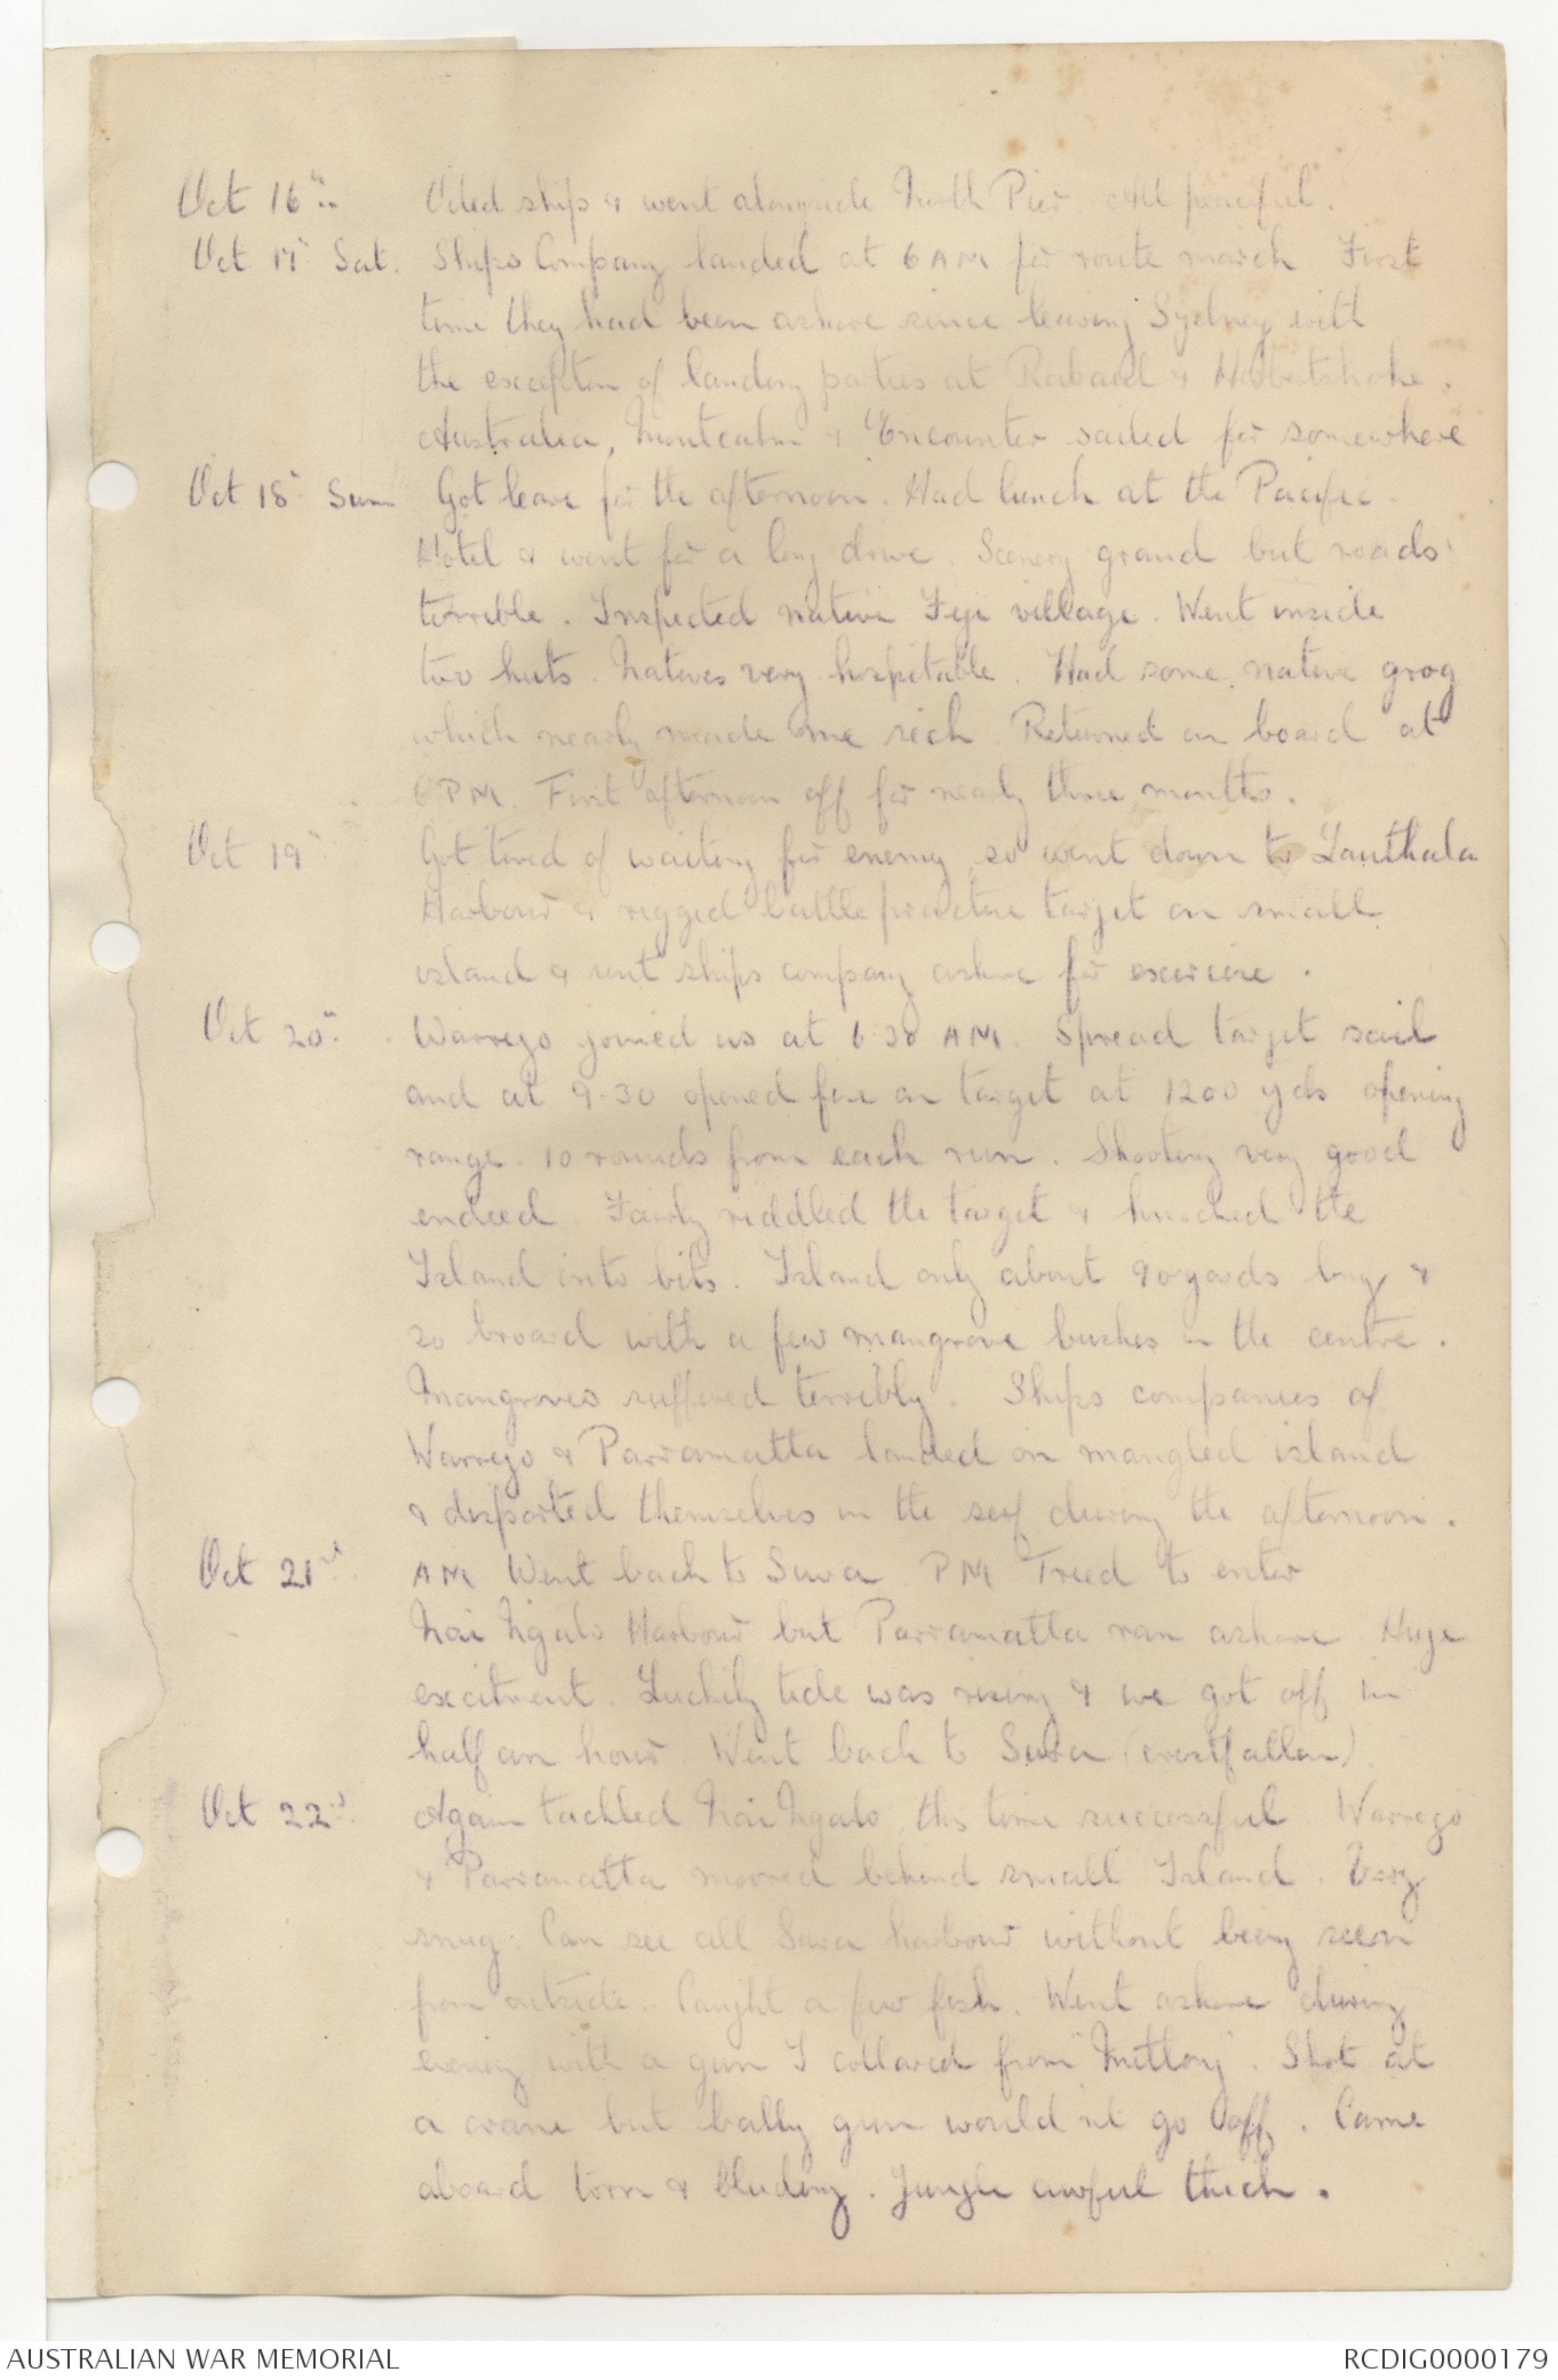 Oct 16th Oiled ship & went alongside North Pier. All peaceful.
Oct 17th Sat. Ships Company landed at 6 AM for route march First
time they had been ashore since leaving Sydney with
the exception of landing parties at Rabaul & Herbertshohe.
Australia, Montcalm & Encounter sailed for somewhere
Oct 18th Sun Got leave for the afternoon. Had lunch at the Pacific
Hotel & went for a long drive. Scenery grand but roads
terrible. Inspected native Fiji village. Went inside
two huts. Natives very hospitable. Had some native grog
which nearly made me sick Returned on board at
6 PM. First afternoon off for nearly three months.
Oct 19th Got tired of waiting for enemy so went down to Lauthala
Harbour & rigged battle practice target on small
island & sent ships company ashore for exercise.
Oct 20th Warrego joined us at 6.30 AM. Spread target sail
and at 9.30 opened fire on target at 1200 yds opening
range. 10 rounds from each run. Shooting very good
endeed Fairly riddled the target & knocked the
Island into bits. Island only about 90 yards long &
20 broard with a few mangrove bushes in the centre.
Mangroves suffered terribly. Ships companies of
Warrego & Parramatta landed on mangled island
& disported themselves in the surf during the afternoon.
Oct 21st AM Went back to Suva PM Tried to enter
Nai Ngalo Harbour but Parramatta ran ashore Huge
excitment. Luckily tide was rising & we got off in
half an hour Went back to Suva (crestfallen).
Oct 22nd Again tackled Nai Ngalo this time successful Warrego
& Parramatta moored behind small Island. Very
snug. Can see all Suva harbour without being seen
from outside. Caught a few fish. Went ashore during
evening with a gun I collared from . Shot at
a crane but bally gun would nt go off. Came
aboard torn & bleeding. Jungle awful thick.
AUSTRALIAN WAR MEMORIAL
RCDIG0000179